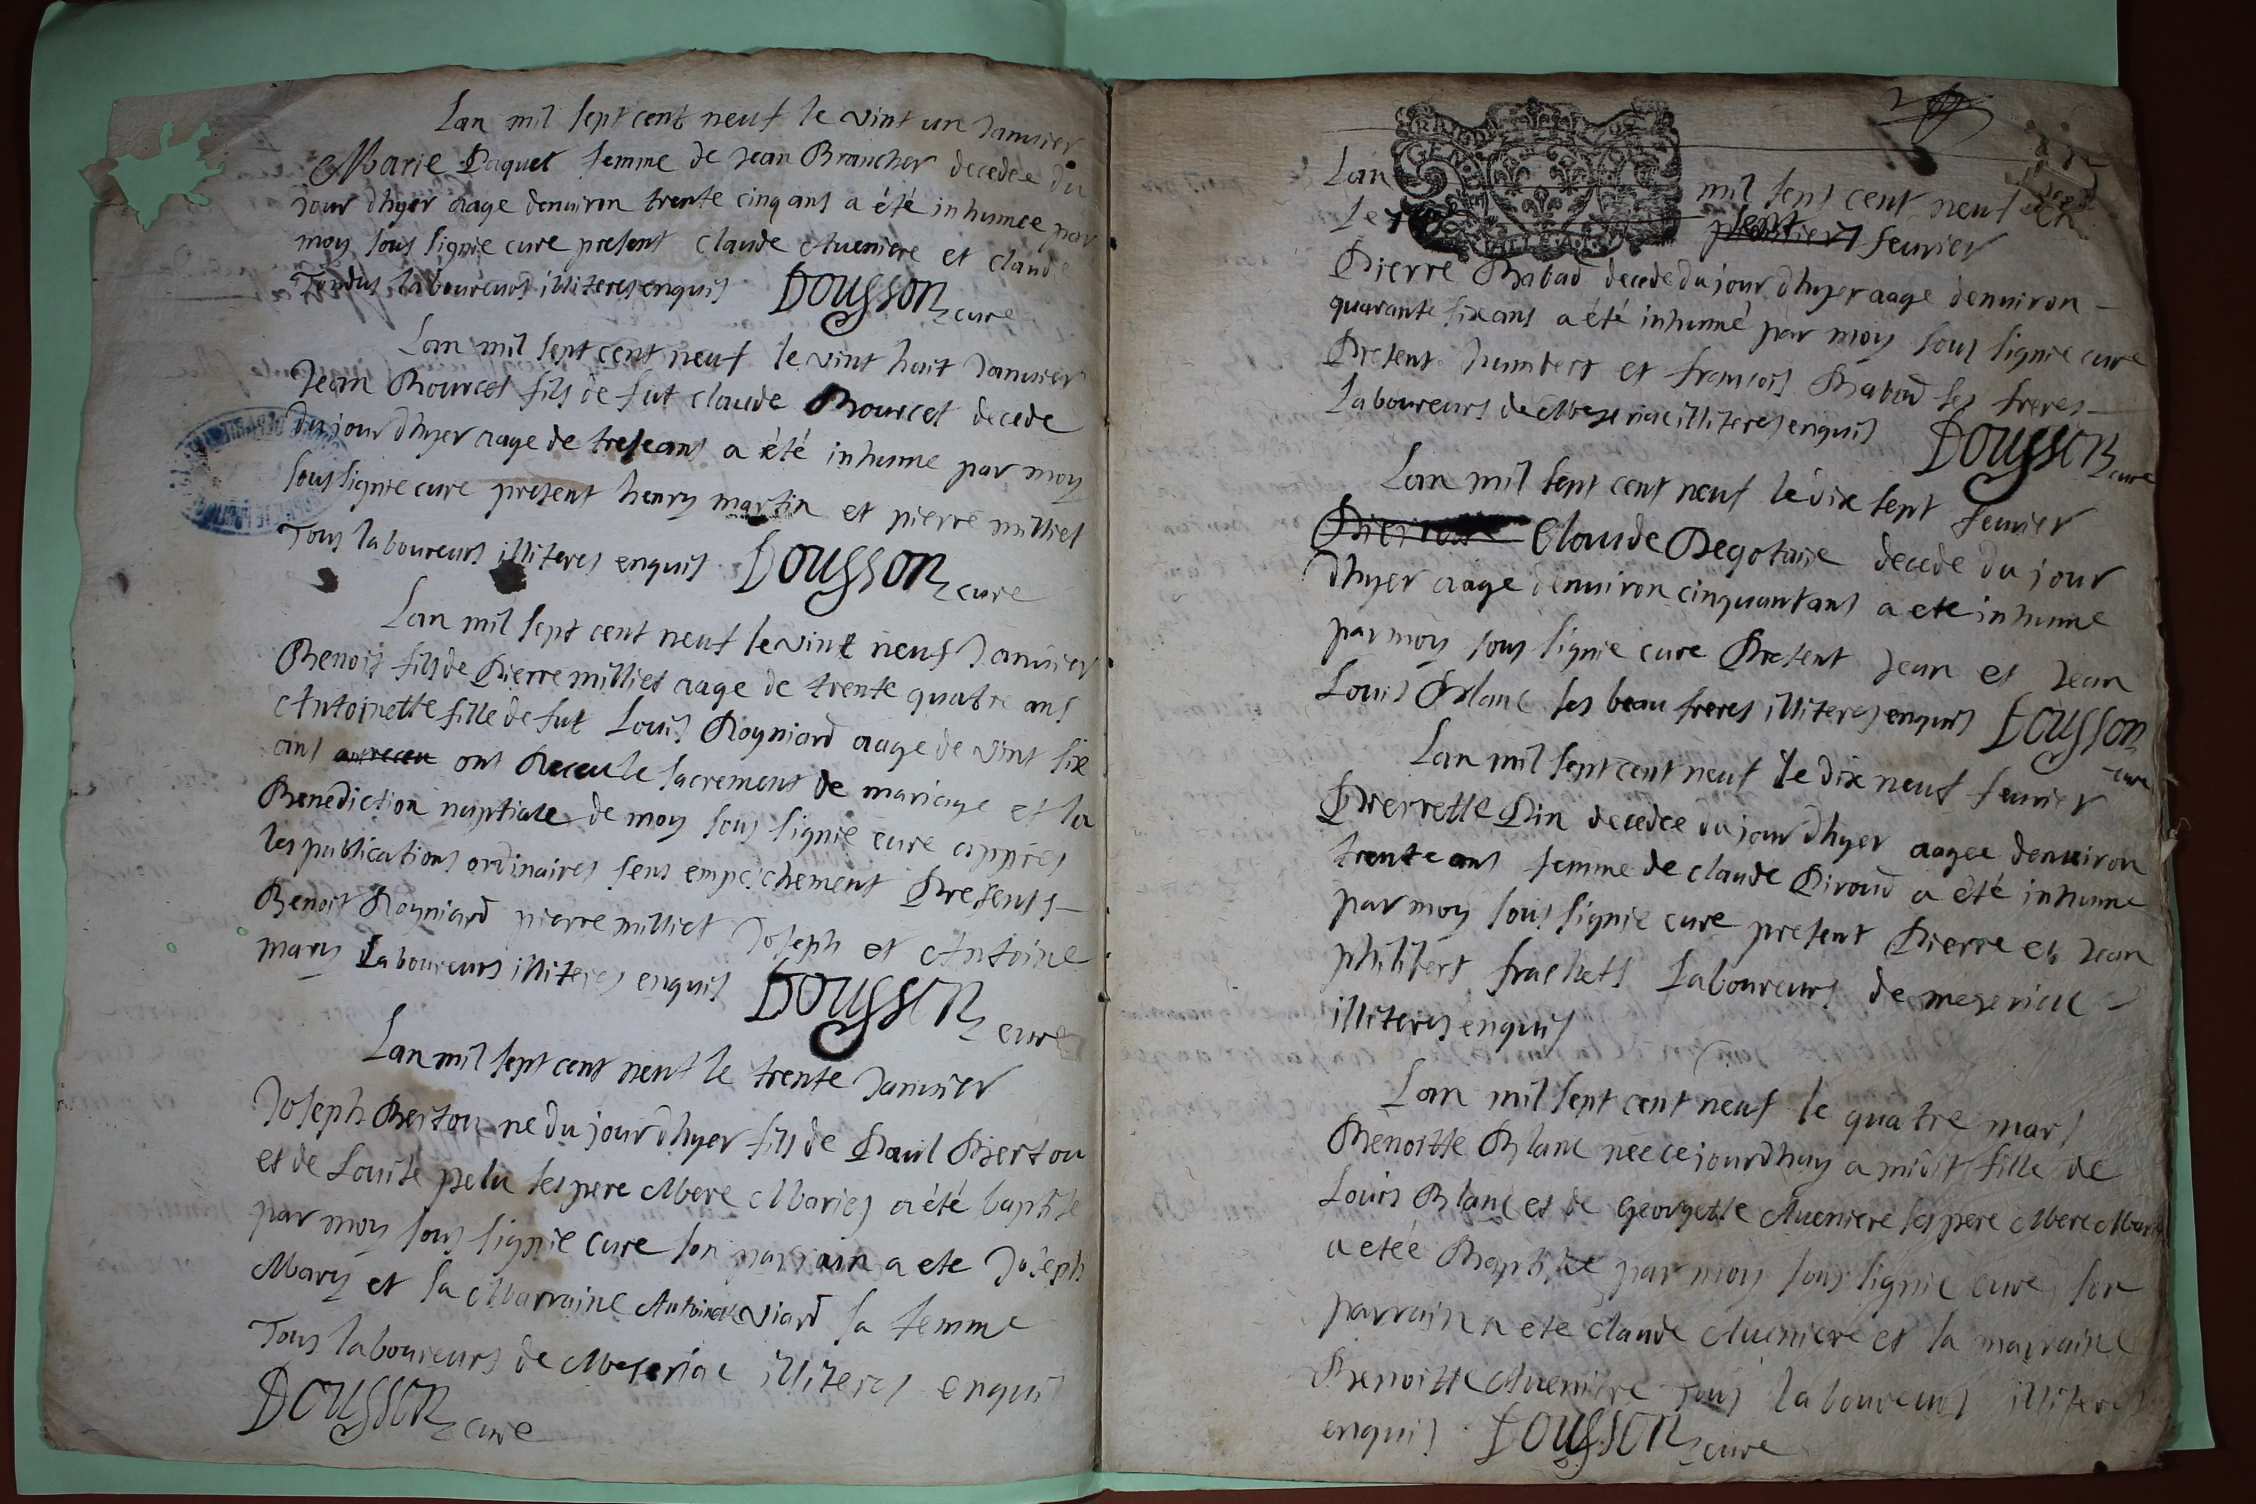 Lan mil sept cent neuf le vint un Janvier
Marie Paquet femme de Jean Brancher decedee du
jour dhyer aage denviron trente cinq ans a été inhumee par
moy sous signie cure present Claude Aueniere et claude
Tondus laboureurs illiteres enquis Dousson cure
Lan mil sept cent neuf le vint huit Janvier
Jean Bourcet fils de fut claude Bourcet decede
du jour dhyer aage de treseans a été inhume par moy
sous signie cure present henry martin et pierre milliet
Tous laboureurs illiteres enquis Dousson cure
Lan mil sept cent neuf le vint neuf Janvier
Benoit fils de Pierre milliet aage de trente quatre ans
Antoinette fille de fut Louis Royniard aage de vint six
ans ont Receu le sacrement de mariage et la
Benediction nuptiale de moy sous signie cure appres
les publications ordinaires sens empechement Presents
Benoit Royniard pierre milliet Joseph et Antoine
mary Laboureurs illiteres enquis Dousson cure
Lan mil sept cent neuf le trente Janvier
Joseph Bertou ne du jour dhyer fils de Paul Bertou
et de Louise pelu ses pere Mere Maries a été baptise
par moy sous signie cure son parrain a ete Joseph
Mary et sa Marraine Antoinette viard sa femme
Tous laboureurs de Meseriac illiteres enquis
Dousson cure
GEND
Lan mil sept cent neuf
le fevrier
Pierre Rabad decede du jour dhyer aage denviron
quarante six ans a été inhumé par moy sous signie cure
Present humbert et francois Rabad ses freres
Laboureurs de Meseriac illiteres enquis Dousson cure
Lan mil sept cent neuf le dix sept fevrier
Claude Degotane decede du jour
dhyer aage denviron cinquantans a ete inhume
par moy sous signie cure Present Jean et Jean
Louis Blanc ses beau freres illiteres enquis Dousson
cure
Lan mil sept cent neuf le dix neuf fevrier
Pierrette Pin decedee du jour dhyer aagee denviron
trente ans femme de claude Piroud a été inhume
par moy sous signie cure present Pierre et Jean
philibert frachets Laboureurs de meseriac
illiteres enquis
Lan mil sept cent neuf le quatre mars
Benoitte Blanc née ce jourdhuy a midit fille de
Louis Blanc et de Georgette Aueniere ses pere Mere
a eteé Baptise par moy sous signie cure son
parrain a ete claude Aueniere et sa marraine
Benoitte Aueniere Tous laboureurs illiteres
enquis Dousson cure